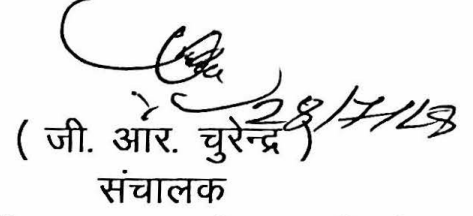 28/7/18
( जी. आर. चुरेन्द्र )
संचालक